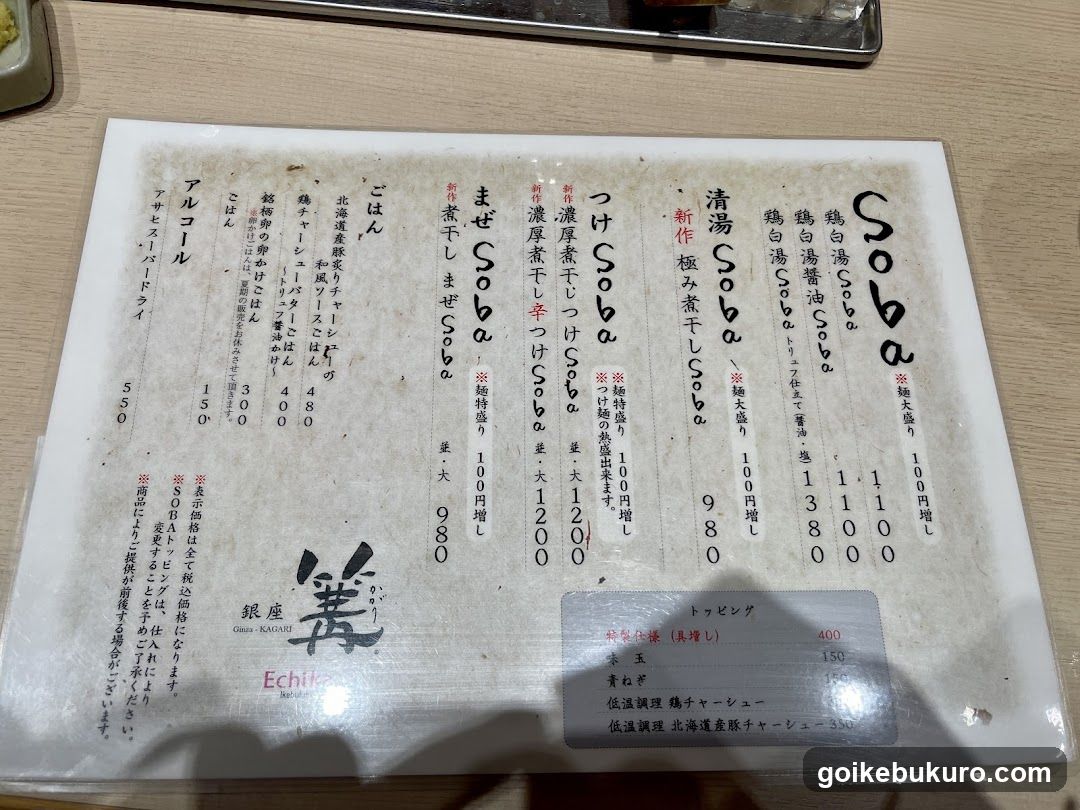 Soba ※麺大盛り 100円増し
鶏白湯Soba 1100
鶏白湯醤油Soba 1100
鶏白湯Soba トリュフ仕立て(醤油・塩) 1380
清湯Soba ※麺大盛り 100円増し
新作 極み煮干しSoba 980
つけSoba ※麺特盛り 100円増し
※つけ麺の熱盛出来ます。
新作 濃厚煮干しつけSoba 並・大 1200
新作 濃厚煮干し辛つけSoba 並・大 1200
まぜSoba ※麺特盛り 100円増し
新作 煮干しまぜSoba 並・大 980
ごはん
北海道産豚炙りチャーシューの
和風ソースごはん 480
鶏チャーシューバターごはん 400
～トリュフ醤油かけ～
銘柄卵の卵かけごはん 300
※卵かけごはんは、夏期の販売をお休みさせて頂きます。
ごはん 150
アルコール
アサヒスーパードライ 550
トッピング
特製仕様(具増し) 400
味玉 150
青ねぎ 150
低温調理 鶏チャーシュー
低温調理 北海道産豚チャーシュー 350
※表示価格は全て税込価格になります。
※SOBAトッピングは、仕入れにより
変更することを予めご了承ください。
※商品によりご提供が前後する場合がございます。
銀座 篝 かがり
Ginza - KAGARI
Echika
goikebukuro.com